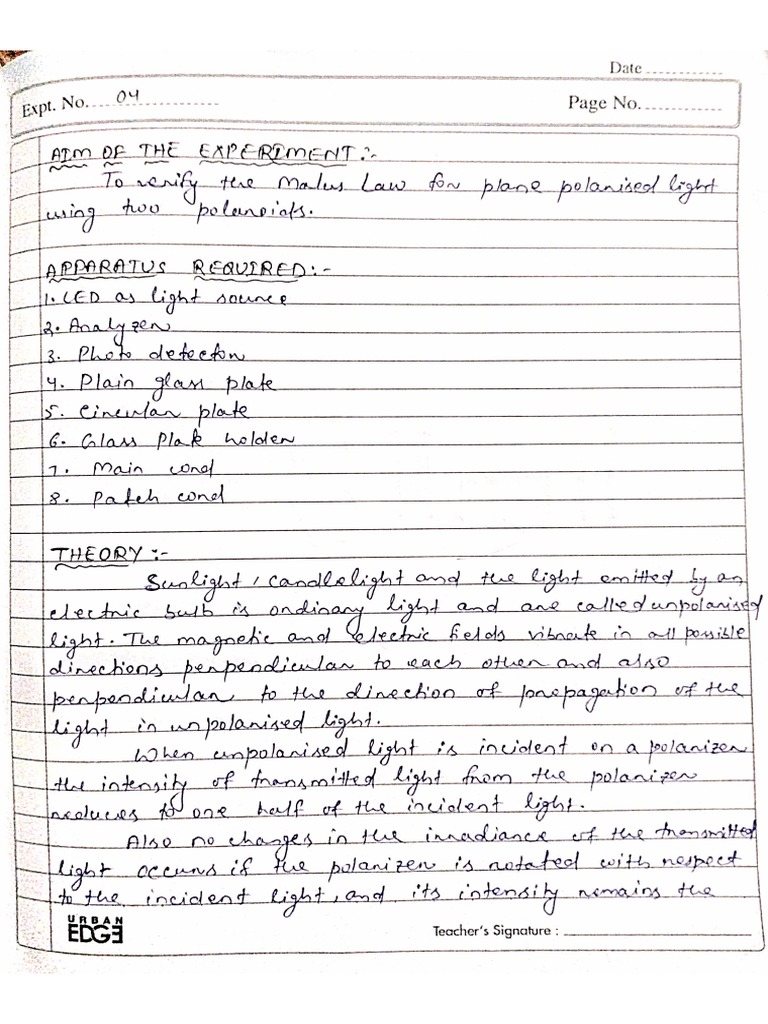 Date ............
Expt. No. 04
Page No. ............
AIM OF THE EXPERIMENT:-
To verify the Malus Law for plane polarised light
using two polaroids.
APPARATUS REQUIRED:-
1. LED as light source
2. Analyzer
3. Photo detector
4. Plain glass plate
5. Circular plate
6. Glass Plate holder
7. Main cord
8. Patch cord
THEORY:-
Sunlight, candlelight and the light emitted by an
electric bulb is ordinary light and are called unpolarised
light. The magnetic and electric fields vibrate in all possible
directions perpendicular to each other and also
perpendicular to the direction of propagation of the
light in unpolarised light.
When unpolarised light is incident on a polarizer
the intensity of transmitted light from the polarizer
reduces to one half of the incident light.
Also no changes in the irradiance of the transmitted
light occurs if the polarizer is rotated with respect
to the incident light, and its intensity remains the
URBAN
EDGE
Teacher's Signature :